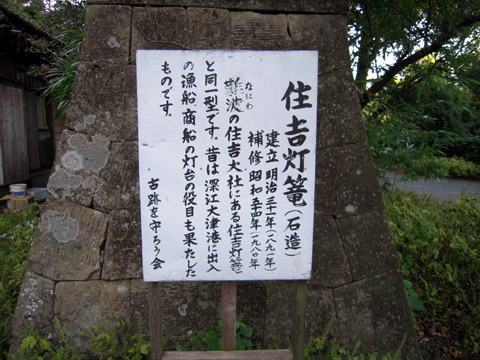 住吉灯篭(石造)
建立 明治三十一年(一八九一年)
補修 昭和五十四年 一九八〇年
なにわ
難波の住吉大社にある住吉灯篭
と同一型です。昔は深江大津港に出入
の漁船、商船の灯台の役目も果たした
ものです。
古跡を守ろう会